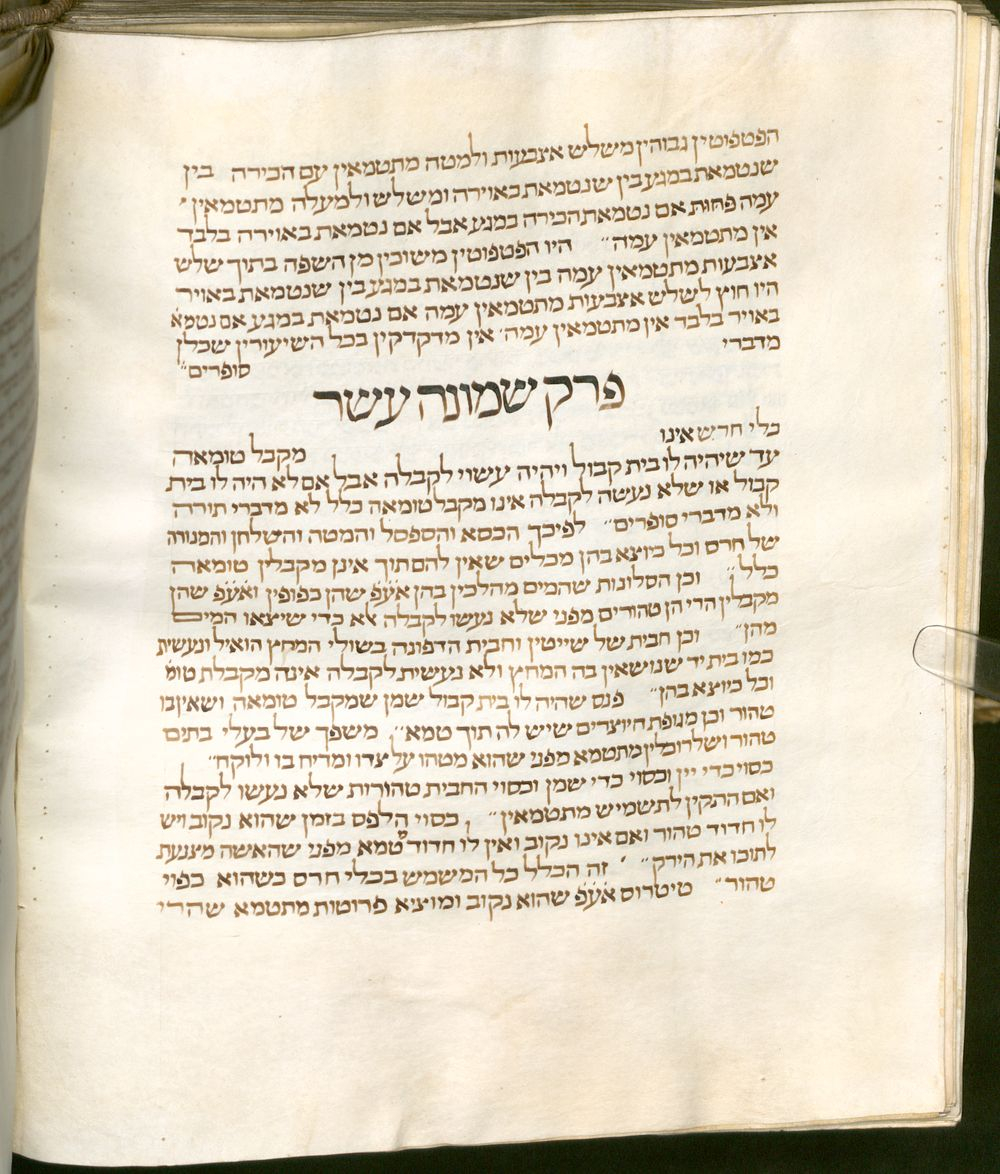 הפטפוטין גבוהין משלש אצבעות ולמטה מתטמאין עם הכירה בין
שנטמאת במגע בין שנטמאת באוירה ומשלש ולמעלה מתטמאין
עמה פחות אם נטמאת הכירה במגע אבל אם נטמאת באוירה בלבד
אין מתטמאין עמה״ היו הפטפוטין משוכין מן השפה בתוך שלש
אצבעות מתטמאין עמה בין שנטמאת במגע בין שנטמאת באויר
היו חוץ לשלש אצבעות מתטמאין עמה אם נטמאת במגע אם נטמא
באויר בלבד אין מתטמאין עמה׳ אין מדקדקין בכל השיעורין שכלן
מדברי
סופרים״
פרק שמונה עשר
כלי חרש אינו
מקבל טומאה
עד שיהיה לו בית קבול ויהיה עשוי לקבלה אבל אם לא היה לו בית
קבול או שלא נעשה לקבלה אינו מקבל טומאה כלל לא מדברי תורה
ולא מדברי סופרים״ לפיכך הכסא והספסל והמטה והשלחן והמנורה
של חרס וכל כיוצא בהן מכלים שאין להם תוך אינן מקבלין טומאה
כלל״ וכן הסלונות שהמים מהלכין בהן אעפ שהן כפופין ואעפ שהן
מקבלין הרי הן טהורים מפני שלא נעשו לקבלה לא כדי שיצאו המים
מהן״ וכן חבית של שייטין וחבית הדפונה בשולי המחץ הואיל ונעשית
כמו בית יד שנושאין בה המחץ ולא נעשית לקבלה אינה מקבלת טומ
וכל כיוצא בהן״ פנס שהיה לו בית קבול שמן שמקבל טומאה ושאין בו
טהור וכן מגופת היוצרים שיש לה תוך טמא״ משפך של בעלי בתים
טהור ושל רוכלין מתטמא מפני שהוא מטהו על צדו ומריח בו ולוקח״
כסוי כדי יין וכסוי כדי שמן וכסוי החבית טהורות שלא נעשו לקבלה
ואם התקין לתשמיש מתטמאין״ כסוי הלפס בזמן שהוא נקוב ויש
לו חדוד טהור ואם אינו נקוב ואין לו חדוד טמא מפני שהאשה מצנעת
לתוכו את הירק״ זה הכלל כל המשמש בכלי חרס כשהוא כפוי
טהור״ טיטרוס אעפ שהוא נקוב ומוציא פרוטות מתטמא שהרי